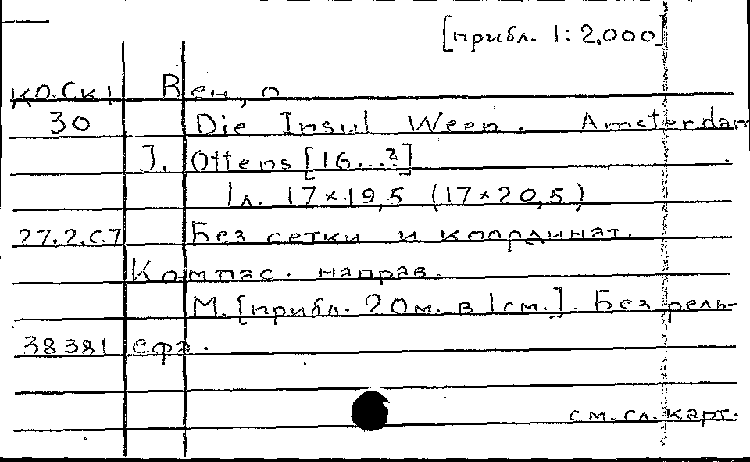 [прибл. 1:2.000]
КО.Ск1 Вен, о
30 Die Insul Ween. Amsterdam
J. Ottens [16...?]
1 л. 17×19,5 (17×20,5)
27.2.С.7 Без сетки и координат.
Компас. направ.
М. [прибл. 20 м. в 1 см.]. Без рель-
38381 ефа.
см. сл. карт.